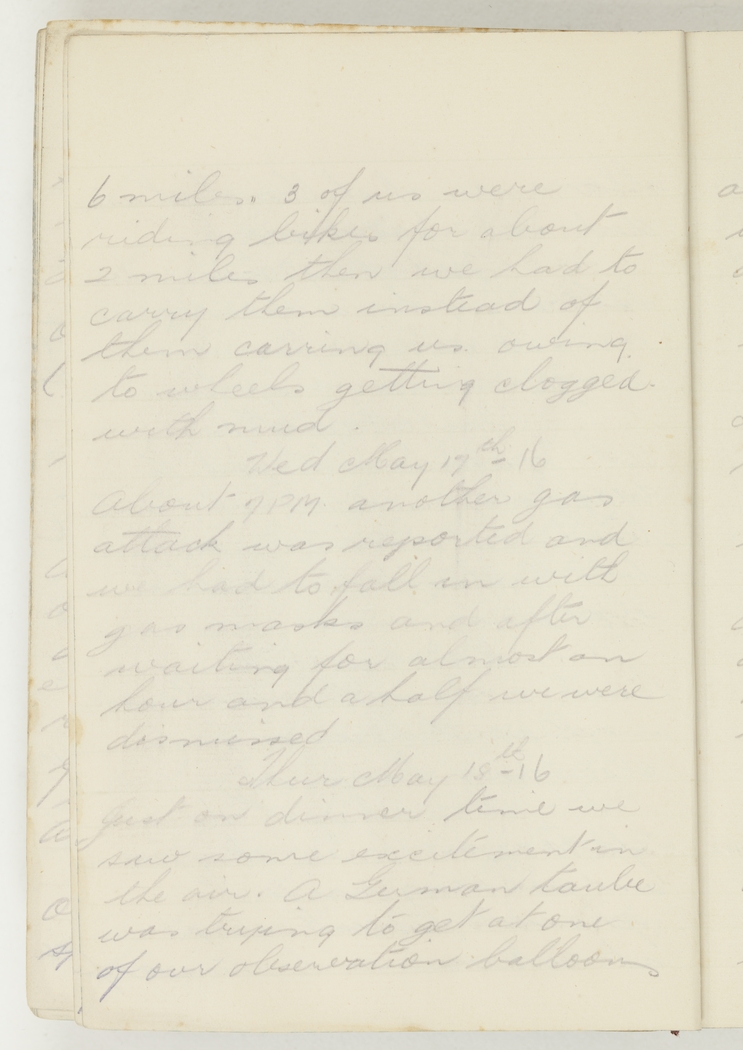 6 miles,, 3 of us were
riding bikes for about
2 miles then we had to
carry them instead of
them carring us. owing
to wheels getting clogged
with mud.
Wed May 17th-16
About 7 PM. another gas
attack was reported and
we had to fall in with
gas masks and after
waiting for almost an
hour and a half we were
dismissed
Thur May 18th-16
Just on dinner time we
saw some excitement in
the air. A German taube
was trying to get at one
of our observation balloons